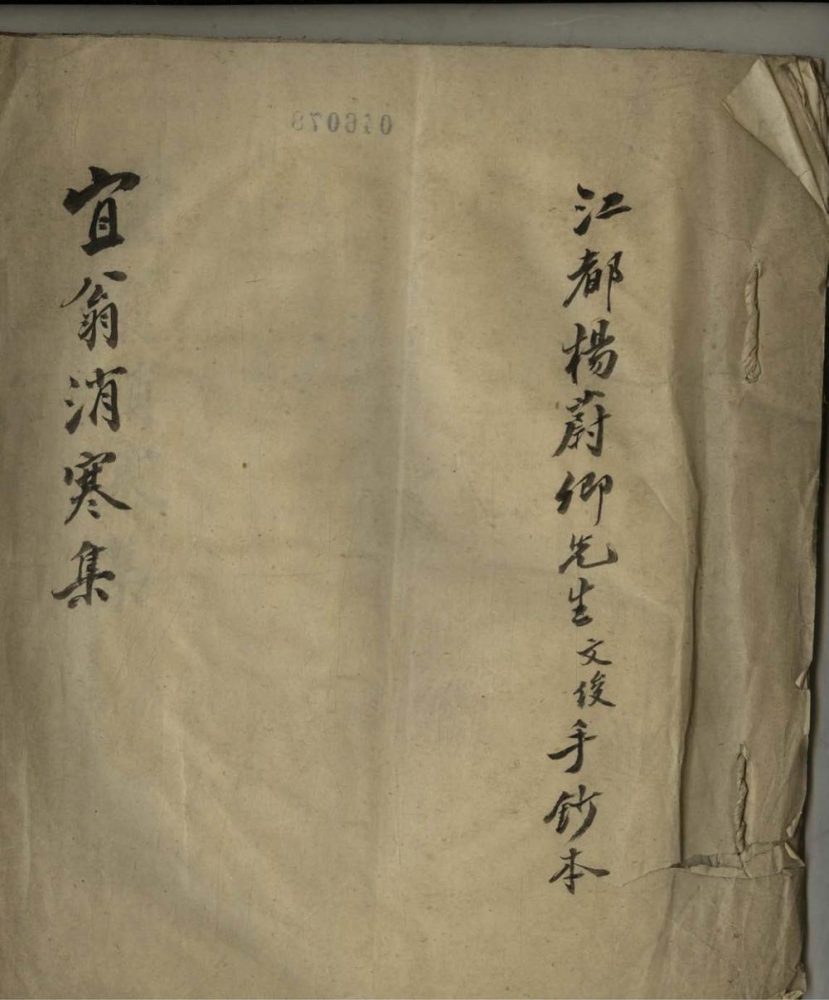 江都楊蔚卿先生文俊手鈔本
宜翁消寒集
046078